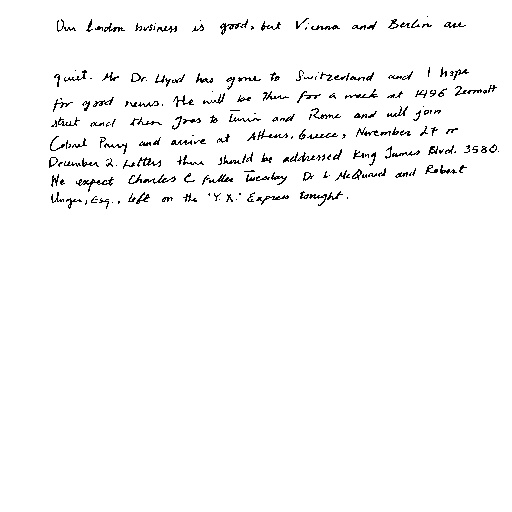 Our London business is good, but Vienna and Berlin are
quiet. Mr Dr. Llyod has gone to Switzerland and I hope
for good news. He will be there for a week at 1496 Zermott
street and then goes to Turin and Rome and will join
Colonel Parry and arrive at Athens, Greece, November 27 or
December 2. Letters there should be addressed King James Blvd. 3580.
We expect Charles E Fuller Tuesday Dr L McQuaid and Robert
Unger, Esq., left on the "Y.X." Express tonight.